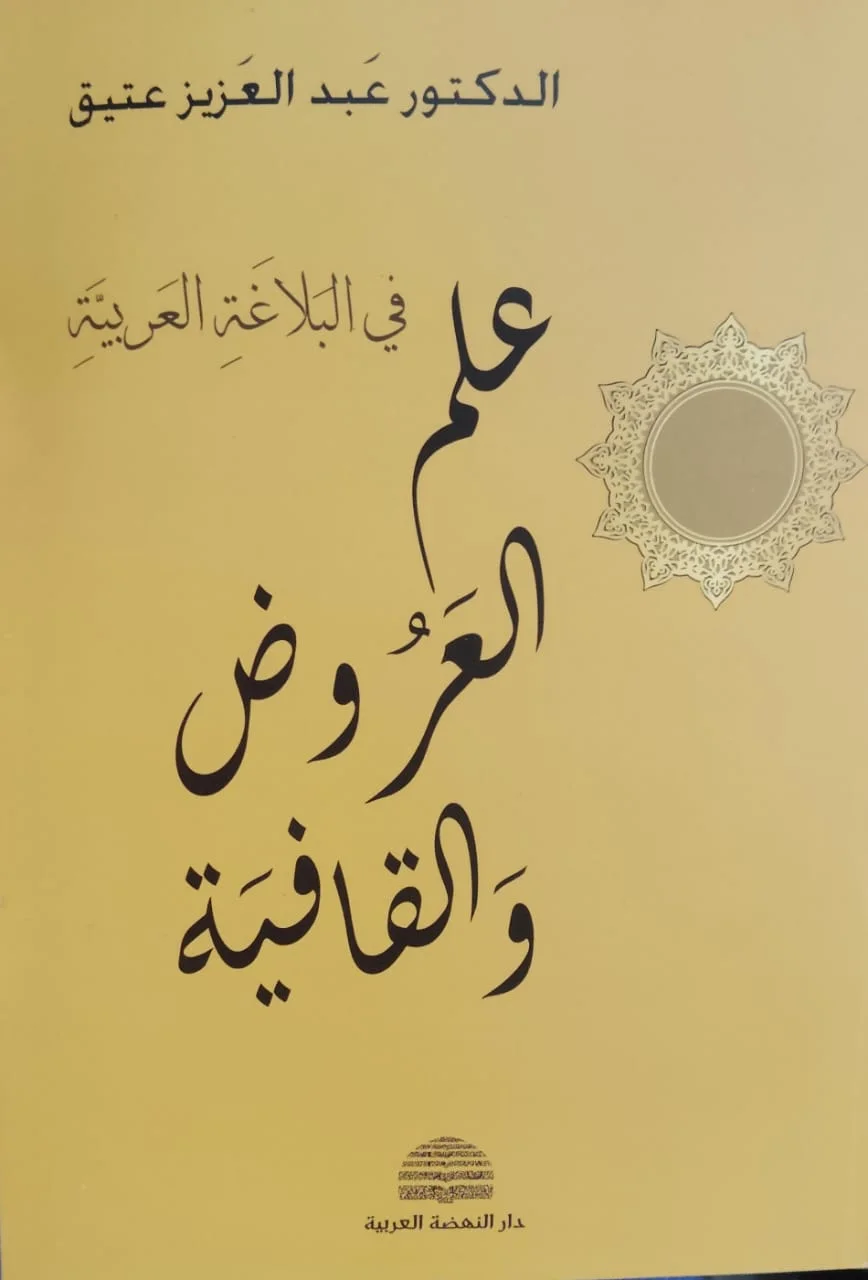 الدكتور عَبد العَزيز عتيق
في البَلاغَةِ العَربيَّةِ
علم
العَرُوض
وَالقافيَة
دار النهضة العربية